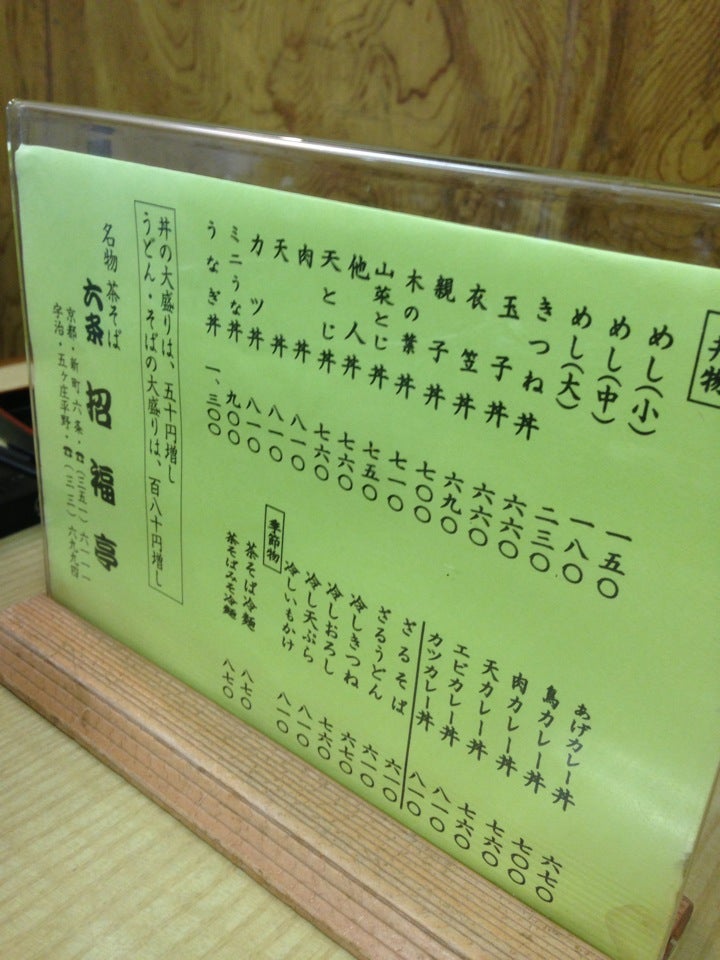 丼物
めし(小) 一五〇
めし(中) 一八〇
めし(大) 二三〇
きつね丼 六六〇
玉子丼 六六〇
衣笠丼 六九〇
親子丼 七〇〇
木の葉丼 七一〇
山菜とじ丼 七五〇
他人丼 七六〇
天とじ丼 七六〇
肉丼 八一〇
天丼 八一〇
カツ丼 八一〇
ミニうな丼 九〇〇
うなぎ丼 一、三〇〇
あげカレー丼 六七〇
鳥カレー丼 七〇〇
肉カレー丼 七六〇
天カレー丼 七六〇
エビカレー丼 八一〇
カツカレー丼 八一〇
ざるそば 六一〇
ざるうどん 六一〇
冷しきつね 六七〇
冷しおろし 七六〇
冷し天ぷら 八一〇
冷しいもかけ 八一〇
季節物
茶そば冷麺 八七〇
茶そばみそ冷麺 八七〇
丼の大盛りは、五十円増し
うどん・そばの大盛りは、百八十円増し
名物 茶そば
六条 招福亭
京都・新町六条・☎(三五一)六一一一
宇治・五ヶ庄平野・☎(三三)六九九四